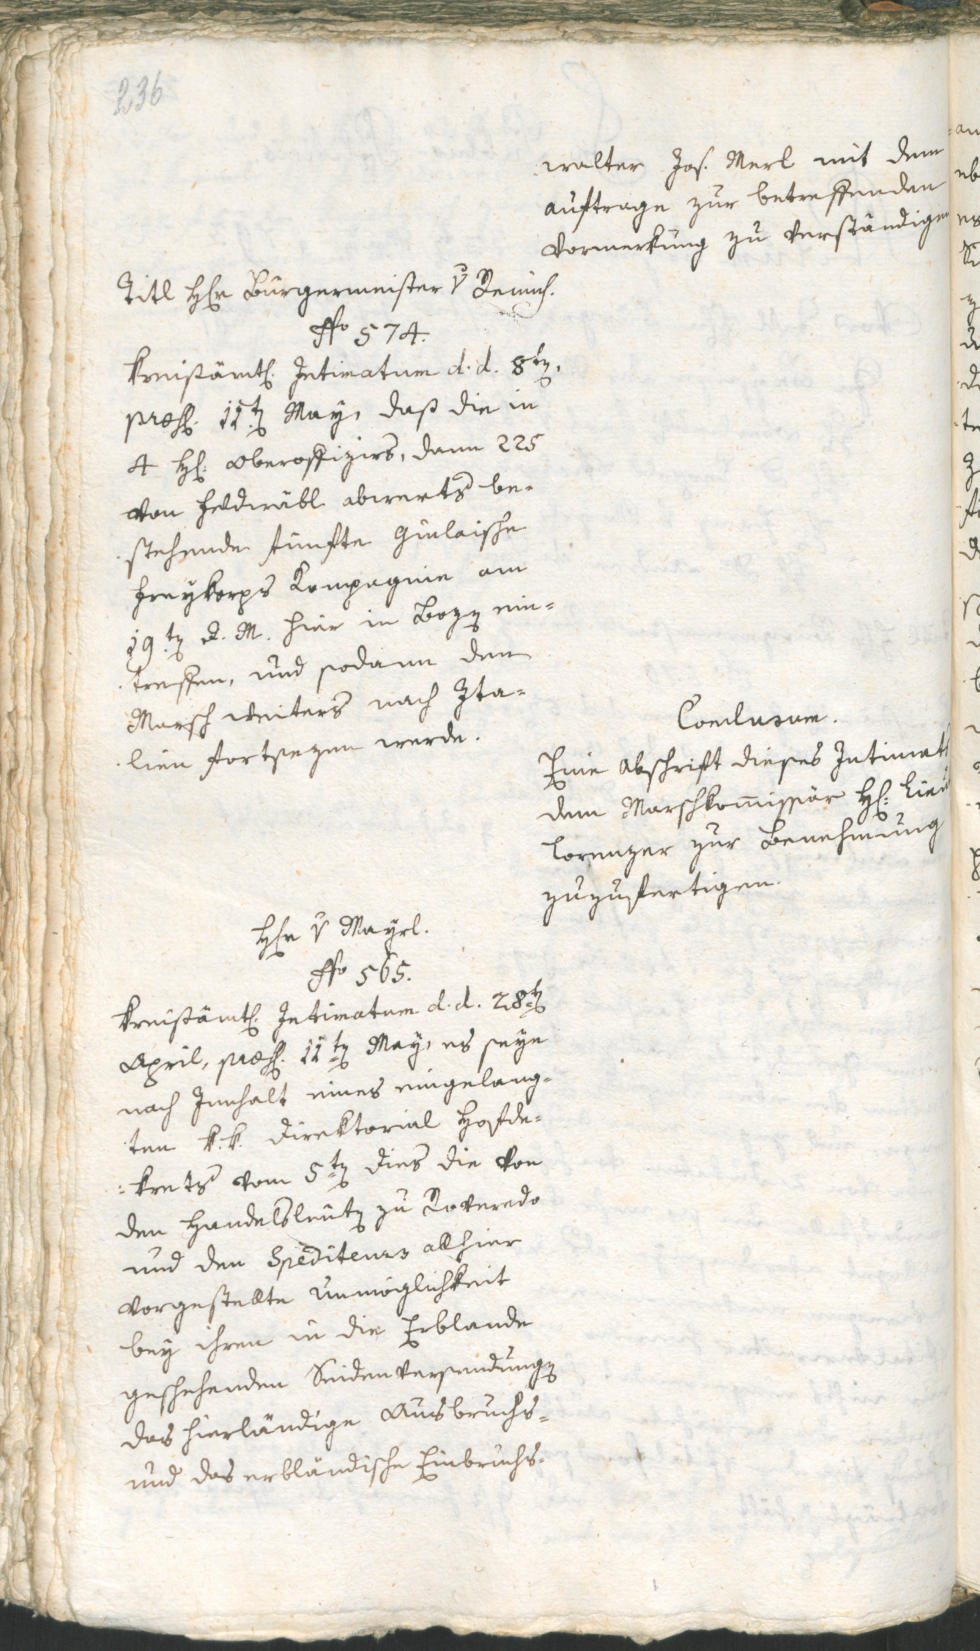 236
walter Jos. Merl mit dem
auftrage zur betreffenden
Vormerkung zu verständigen
Titl Hr Bürgermeister v Remich.
No 574.
Kreisämtl. Intimatum d. d. 8tn,
præs. 11tn May, daß die in
4 Hl. Oberoffiziers, dann 225
von Feldwäbl abwerts be-
stehende fünfte Giulaische
Freykorps Kompagnie am
19.tn d. M. hier in Bozn ein-
treffen, und sodann den
Marsch weiters nach Ita-
lien fortsezen werde.
Conclusum.
Eine Abschrift dieses Intimats
dem Marschkommissär Hl.
Lorenzer zur Benehmung
zuzufertigen.
Hr v Mayrl.
No 565.
Kreisämtl. Intimatum d. d. 28tn
April, præs. 11tn May, es seye
nach Innhalt eines eingelang-
ten k. k. Direktorial Hofde-
krets vom 5tn dies die von
den Handelsleutn zu Roveredo
und den Spediteurs allhier
vorgestellte Unmöglichkeit
bey ihren in die Erblande
geschehenden Seidenversendungn
das hierländige Ausbruchs-
und das erbländische Einbruchs-